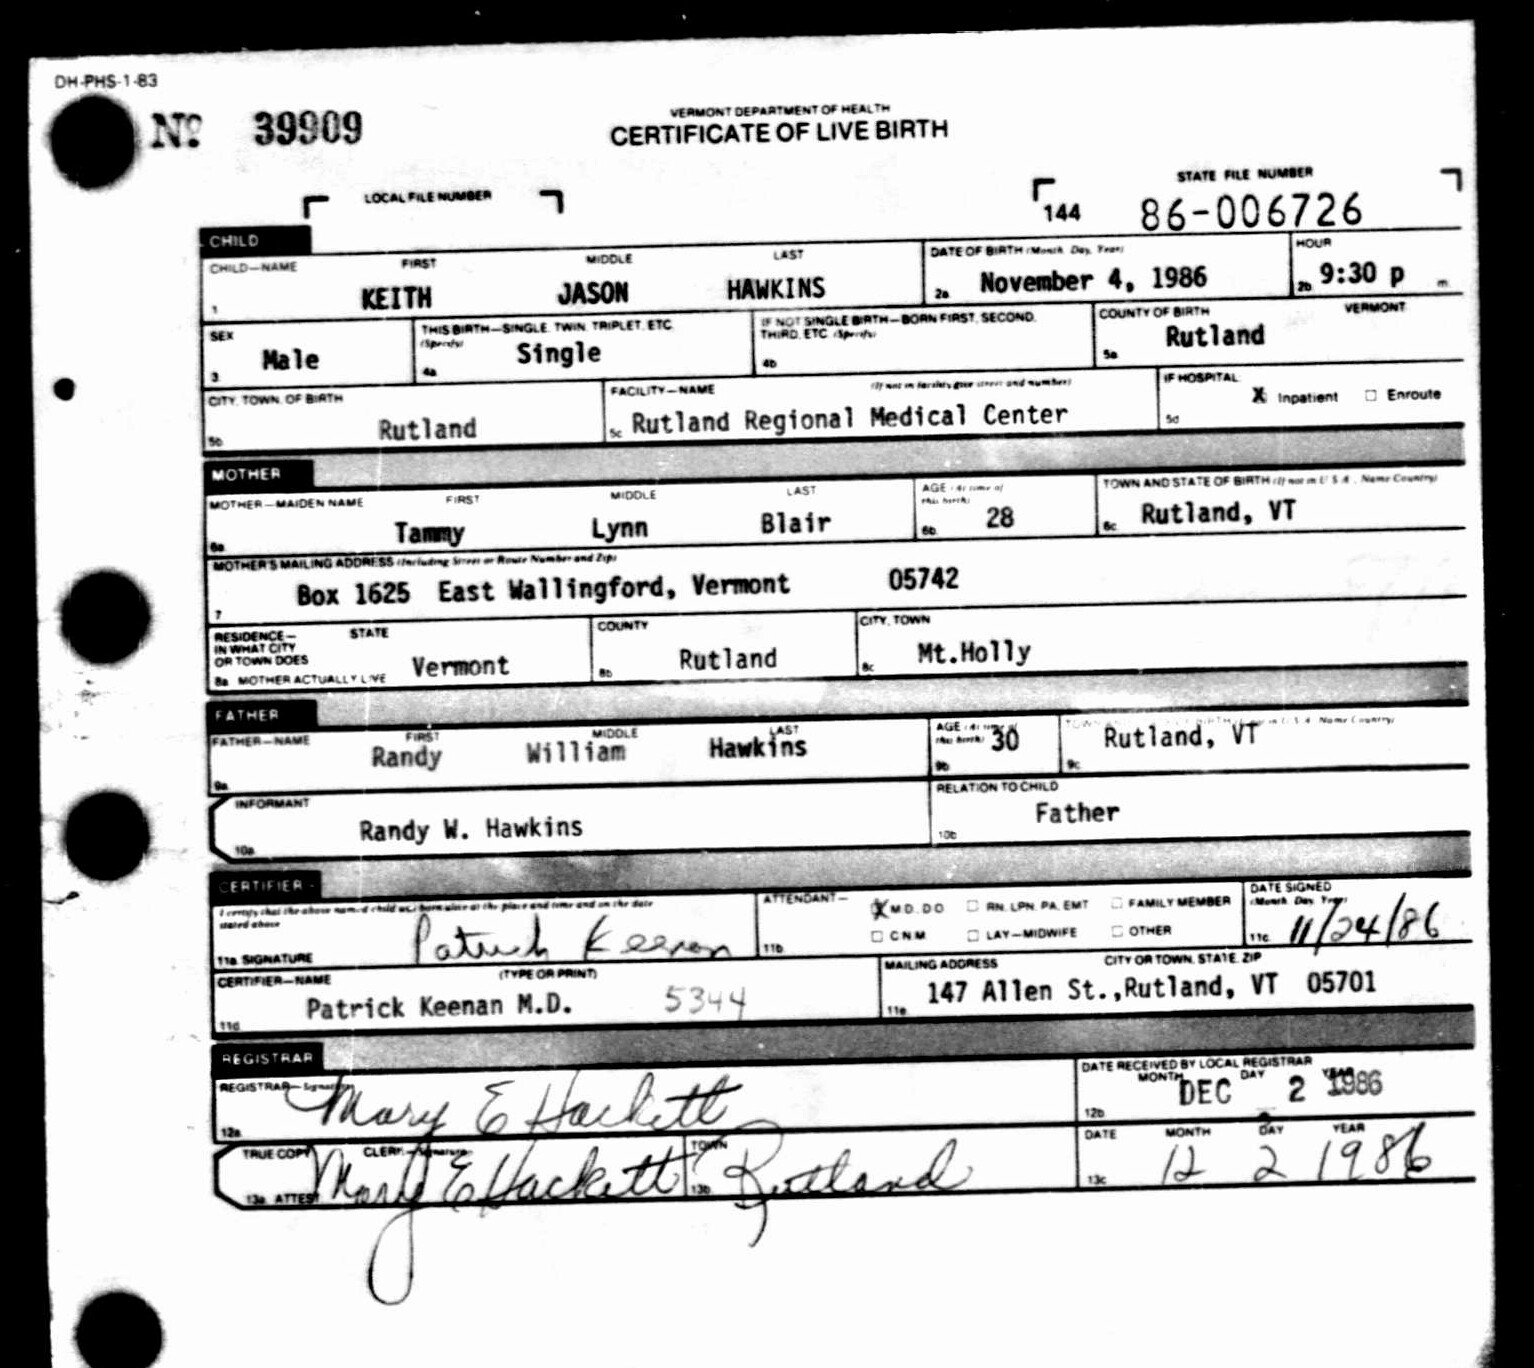 DH-PHS-1-83
Nº 39909
VERMONT DEPARTMENT OF HEALTH
CERTIFICATE OF LIVE BIRTH
LOCAL FILE NUMBER
STATE FILE NUMBER
144 86-006726
CHILD
CHILD—NAME FIRST MIDDLE LAST
1 KEITH JASON HAWKINS
DATE OF BIRTH (Month, Day, Year)
2a November 4, 1986
HOUR
2b 9:30 p m.
SEX
3 Male
THIS BIRTH—SINGLE, TWIN, TRIPLET, ETC.
(Specify)
4a Single
IF NOT SINGLE BIRTH—BORN FIRST, SECOND,
THIRD, ETC. (Specify)
4b
COUNTY OF BIRTH VERMONT
5a Rutland
CITY, TOWN, OF BIRTH
5b Rutland
FACILITY—NAME (If not in facility, give street and number)
5c Rutland Regional Medical Center
IF HOSPITAL:
5d X Inpatient Enroute
MOTHER
MOTHER—MAIDEN NAME FIRST MIDDLE LAST
6a Tammy Lynn Blair
AGE (At time of
this birth)
6b 28
TOWN AND STATE OF BIRTH (If not in U.S.A., Name Country)
6c Rutland, VT
MOTHER'S MAILING ADDRESS (Including Street or Route Number and Zip)
7 Box 1625 East Wallingford, Vermont 05742
RESIDENCE—
IN WHAT CITY
OR TOWN DOES
8a MOTHER ACTUALLY LIVE
STATE
Vermont
COUNTY
8b Rutland
CITY, TOWN
8c Mt.Holly
FATHER
FATHER—NAME FIRST MIDDLE LAST
9a Randy William Hawkins
AGE (At time of
this birth) 30
9b
TOWN AND STATE OF BIRTH (If not in U.S.A., Name Country)
9c Rutland, VT
INFORMANT
10a Randy W. Hawkins
RELATION TO CHILD
10b Father
CERTIFIER
I certify that the above named child was born alive at the place and time and on the date
stated above
11a SIGNATURE Patrick Keenan
ATTENDANT—
11b X M.D., D.O. RN, LPN, PA, EMT FAMILY MEMBER
C.N.M. LAY—MIDWIFE OTHER
DATE SIGNED
(Month, Day, Year)
11c 11/24/86
CERTIFIER—NAME (TYPE OR PRINT)
11d Patrick Keenan M.D. 5344
MAILING ADDRESS CITY OR TOWN, STATE, ZIP
11e 147 Allen St.,Rutland, VT 05701
REGISTRAR
REGISTRAR—Signature
12a Mary E Hackett
DATE RECEIVED BY LOCAL REGISTRAR
MONTH DAY YEAR
12b DEC 2 1986
TRUE COPY CLERK—Signature
13a ATTEST Mary E Hackett
TOWN
13b Rutland
DATE MONTH DAY YEAR
13c 12 2 1986